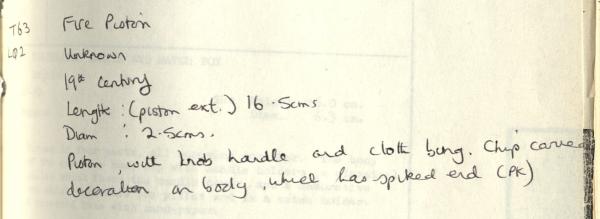 T63 Fire Piston
LP2 Unknown
19th century
Length : (piston ext.) 16.5cms
Diam : 2.5cms.
Piston, with knob handle and cloth bung. Chip carved
decoration on body, which has spiked end (PK)